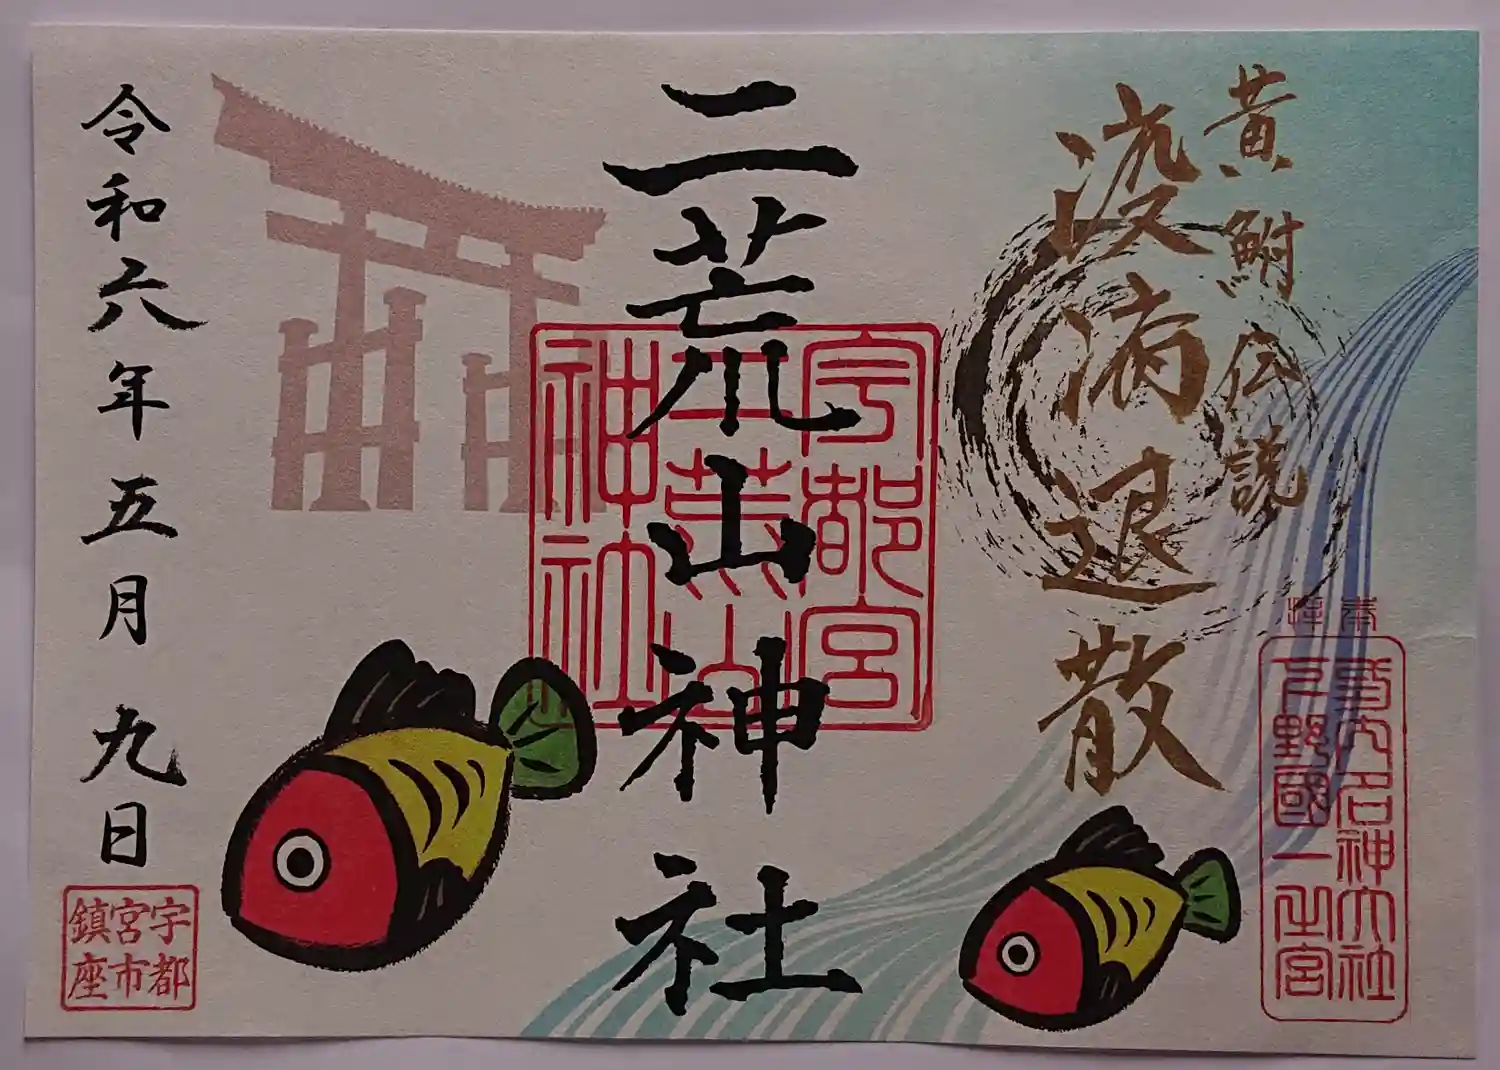 黄鮒伝説
疫病退散
奉拝
式内名神大社
下野國一之宮
二荒山神社
宇都宮
二荒山
神社
令和六年五月九日
宇都
宮市
鎮座